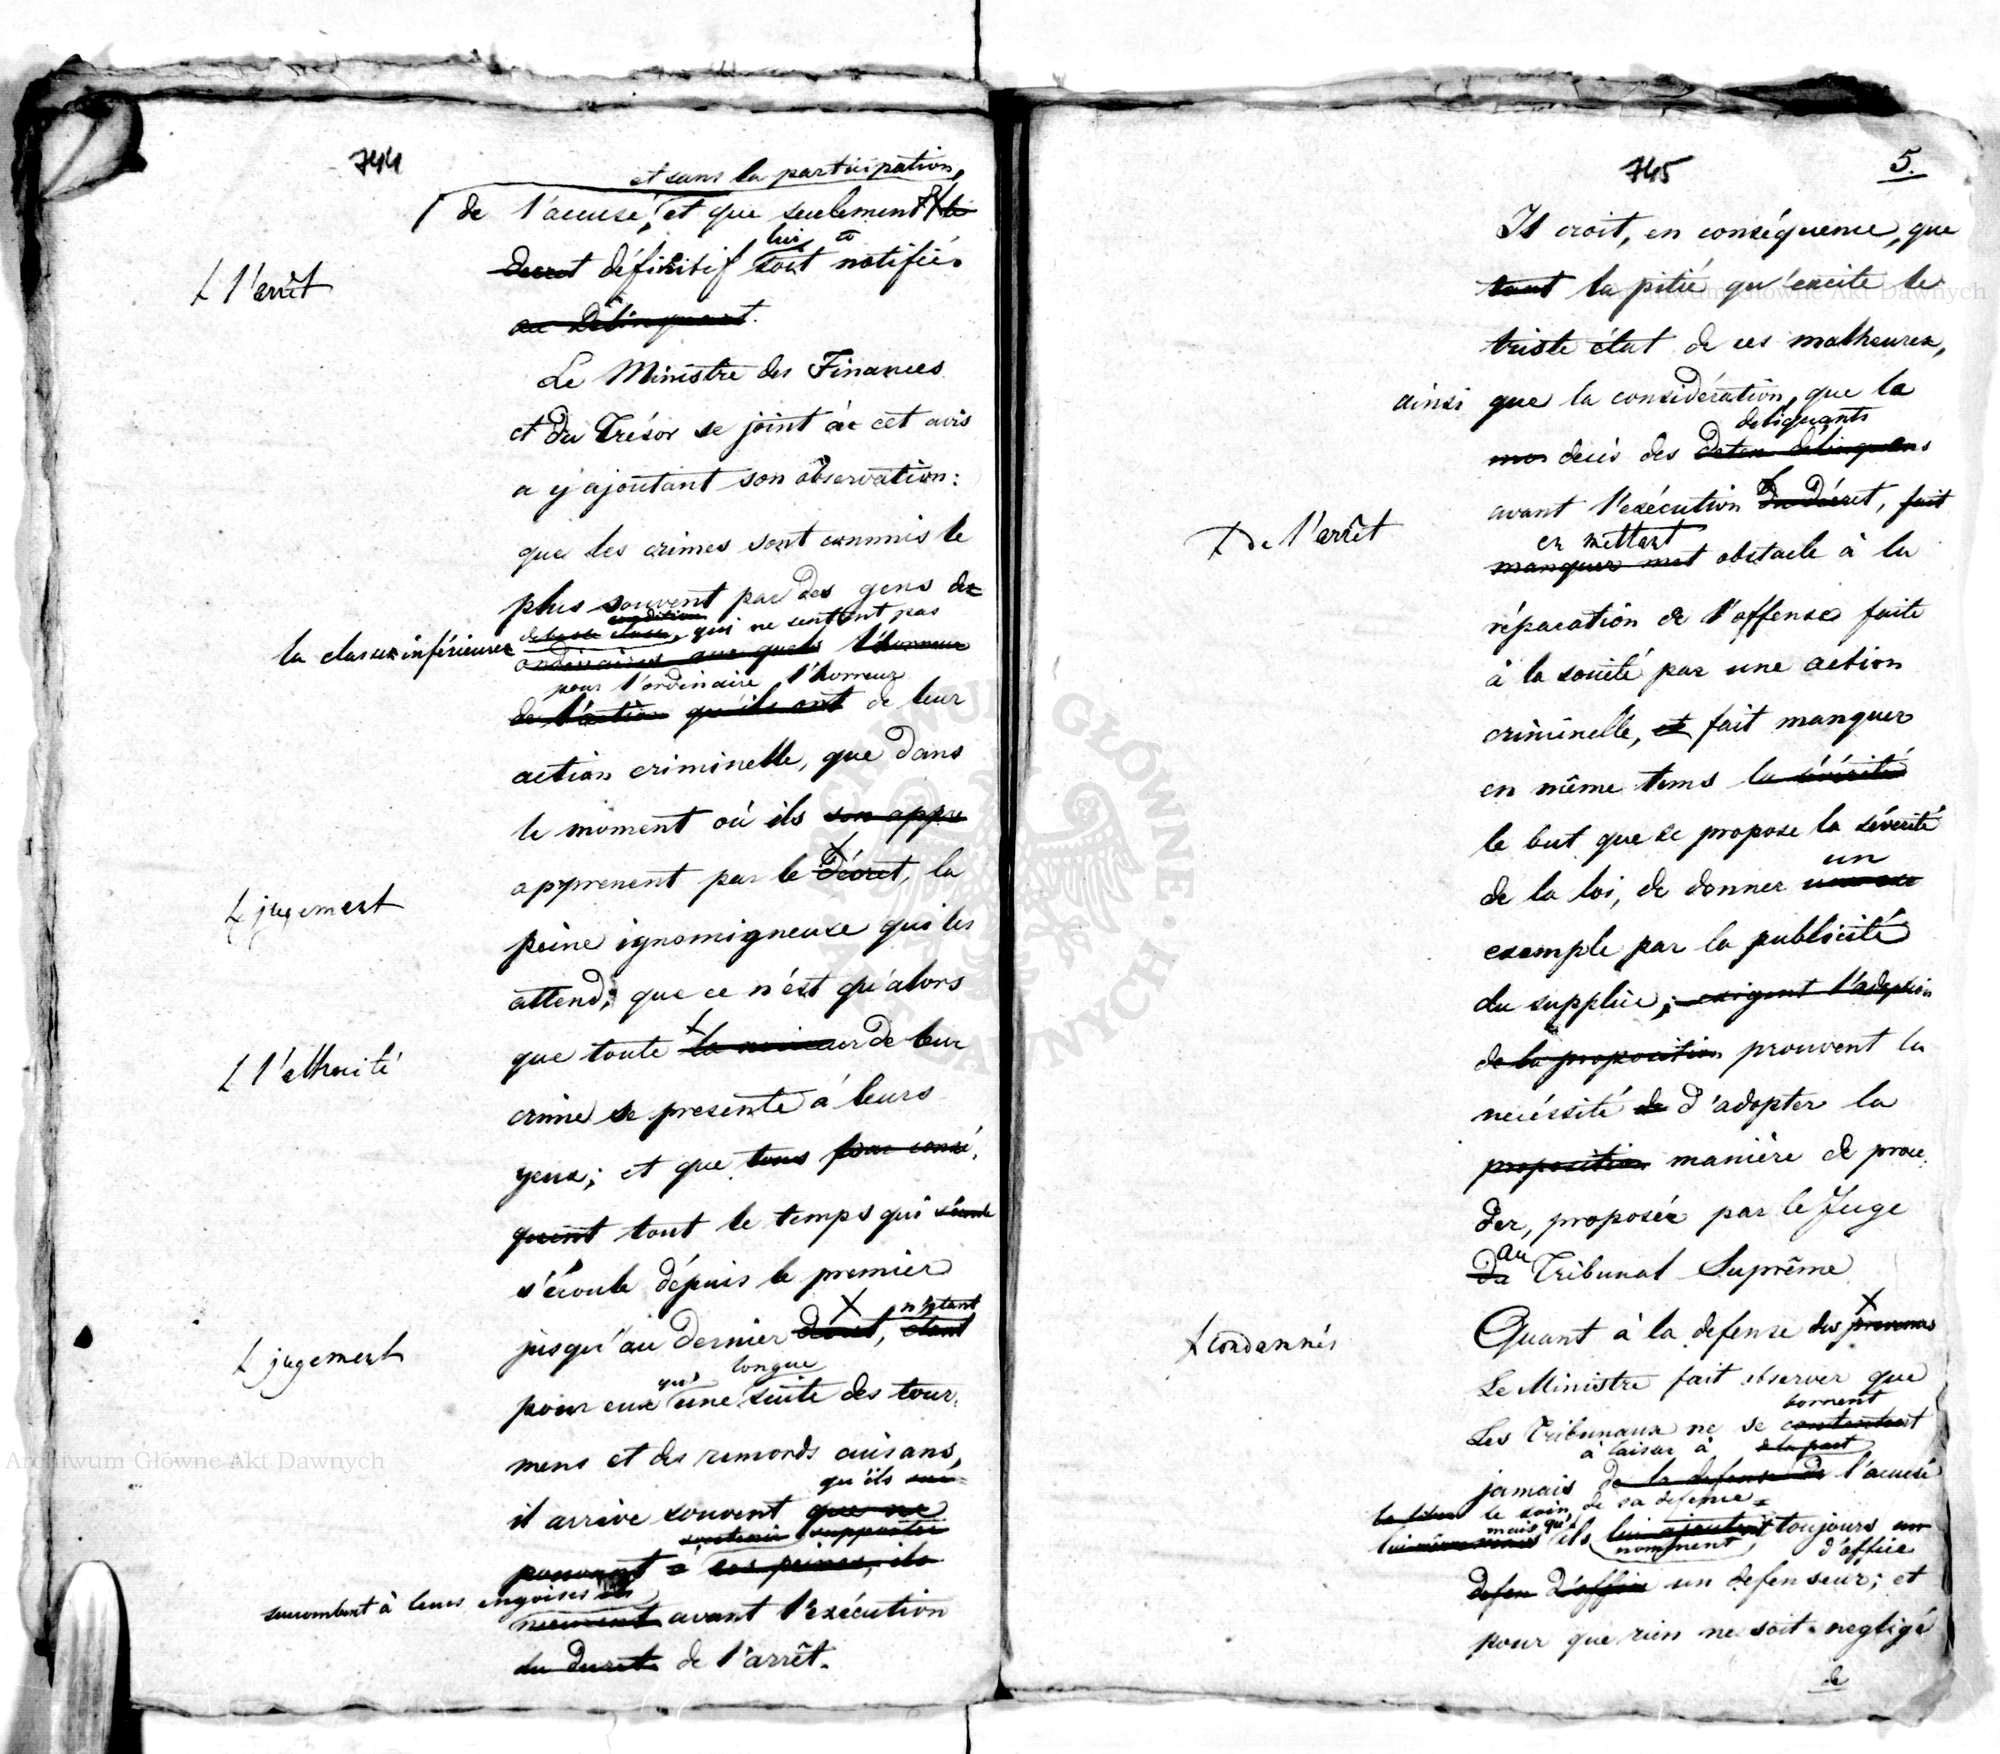 744
et sans la participation,
de l'accusé, et que seulement le
lui
decret définitif soit notifié.
⨯ l'arrêt
au Délinquant.
Le Ministre des Finances
et du Trésor se joint à cet avis
a y ajoutant son observation:
que les crimes sont commis le
plus souvent par des gens de
condition
de basse classe, qui ne sentent pas
la classe inférieure
ordinaires aux quels l'honneur
pour l'ordinaire l'horreur
de l'action qu'ils ont de leur
action criminelle, que dans
le moment où ils son appre
apprenent par le Décret, la
⨯ jugement
peine ignomigneuse qui les
attend; que ce n'est qu'alors
que toute la noirceur de leur
⨯ l'athrocité
crime se presente à leurs
yeux; et que tous par consé,
quent tout le temps qui s'écoule
s'écoule dépuis le premier
n'étant
jusqu'au dernier decret, étant
⨯ jugement
qu' longue
pour eux une suite des tour,
mens et des remords cuisans,
qu'ils
il arrive souvent que ne
soutenir supporter
pouvant à ces peines, ils
succombent à leurs angoises
meurent avant l'exécution
du Decret de l'arrêt.
745
5.
Il croit, en conséquence, que
tant la pitié qu'excite le
triste état de ces malheureux,
ainsi que la considération, que la
deliquants
mor decès des delinquans
avant l'exécution du Décret, fait
⨯ de l'arrêt
en mettant
manquer met obstacle à la
réparation de l'offense faite
à la societé par une action
criminelle, et fait manquer
en même tems la sévérité
le but que se propose la sévérité
un
de la loi, de donner
exemple par la publicité
du supplice; exigent l'adoption
de la proposition prouvent la
necéssité de d'adopter la
proposition manière de procé,
der, proposée par le Juge
au
du Tribunal Suprême
Quant à la defense des prevenus
⨯ condamnés
Le Ministre fait observer que
bornent
Les Tribunaux ne se contentent
à laisser à de la part
jamais de la defense de l'accusé
le soin de sa defense
mais qu'
lui même mais ils lui ajoutent toujours un
nomment d'office
defen d'office un defenseur; et
pour que rien ne soit negligé
de
Archiwum Główne Akt Dawnych
Archiwum Główne Akt Dawnych
ARCHIWUM GŁÓWNE AKT DAWNYCH